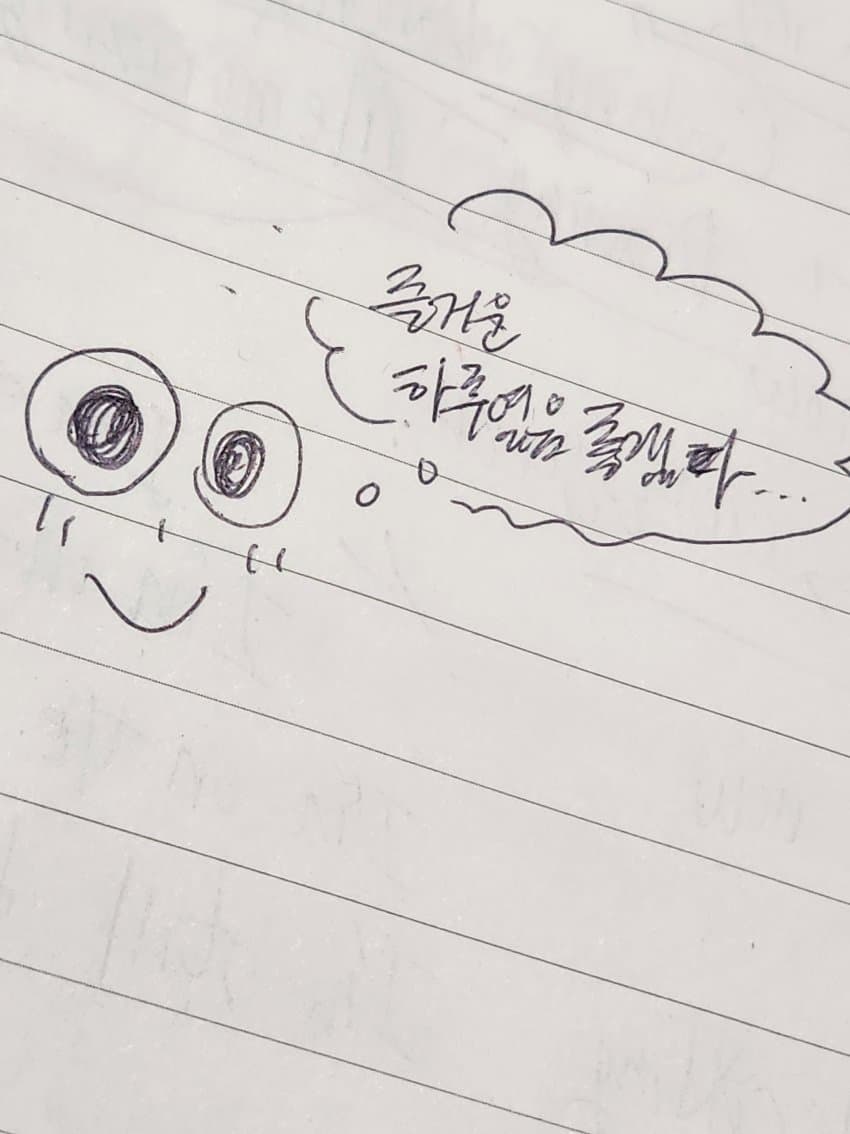 즐거운
하루였음 좋겠다...